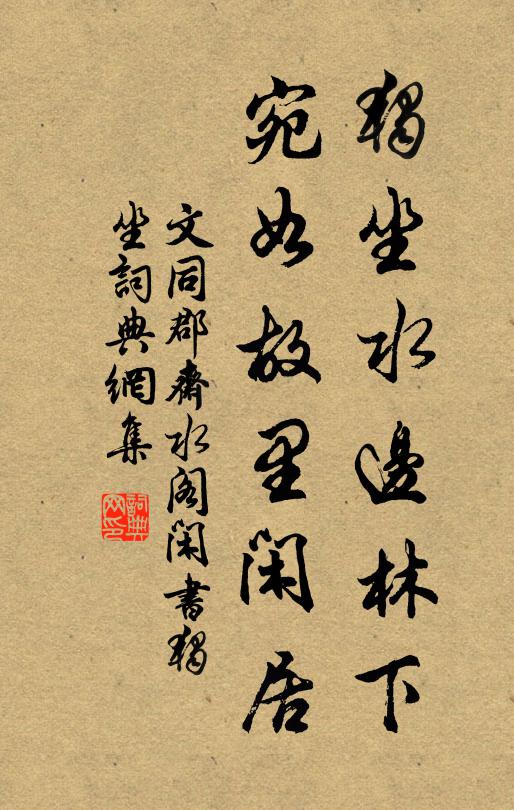 獨坐水邊林下
宛如故里閑居
文同郡齋水閣閑書獨
坐詞典網集
詞典網印